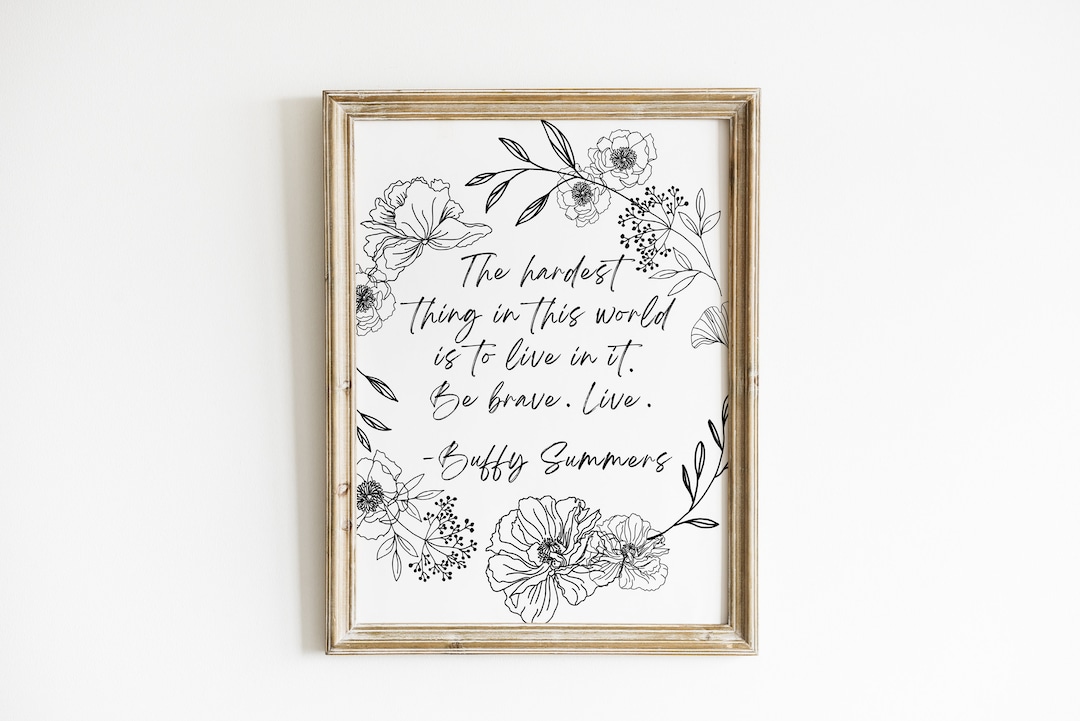 The hardest
thing in this world
is to live in it.
Be brave. Live.
-Buffy Summers